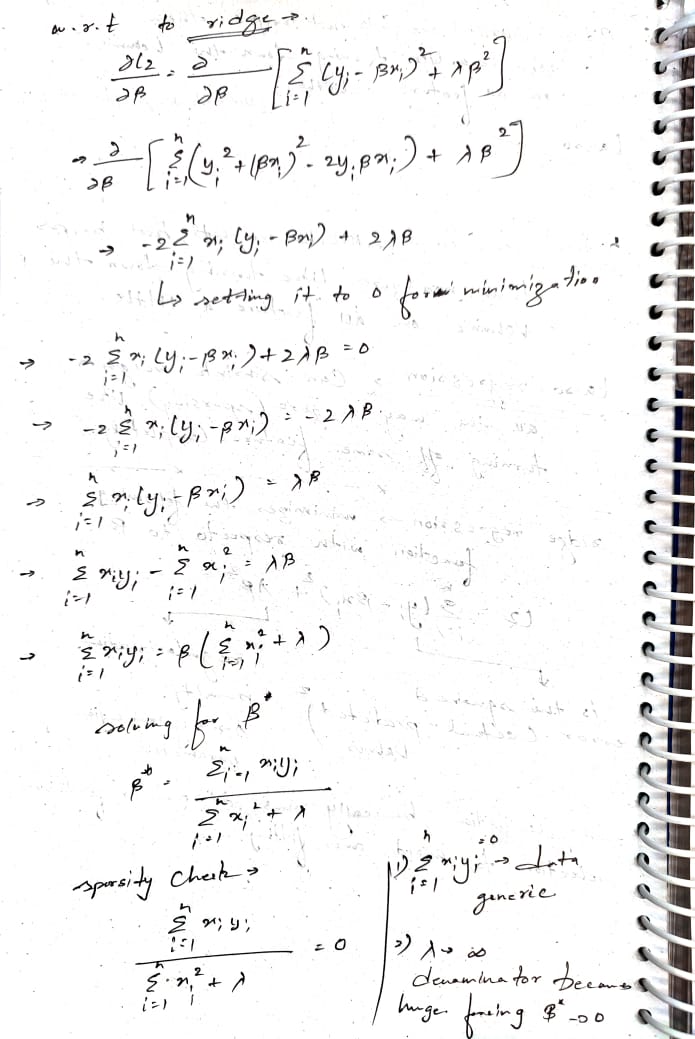 w.r.t to ridge →
∂L2/∂β = ∂/∂β [ Σ_{i=1}^{n} (y_i - βx_i)^2 + λβ^2 ]
→ ∂/∂β [ Σ_{i=1}^{n} (y_i^2 + (βx_i)^2 - 2y_iβx_i) + λβ^2 ]
→ -2 Σ_{i=1}^{n} x_i (y_i - βx_i) + 2λβ
↳ setting it to 0 for minimization
→ -2 Σ_{i=1}^{n} x_i (y_i - βx_i) + 2λβ = 0
→ -2 Σ_{i=1}^{n} x_i (y_i - βx_i) = -2λβ
→ Σ_{i=1}^{n} x_i (y_i - βx_i) = λβ
→ Σ_{i=1}^{n} x_iy_i - Σ_{i=1}^{n} x_i^2 = λβ
→ Σ_{i=1}^{n} x_iy_i = β ( Σ_{i=1}^{n} x_i^2 + λ )
solving for β*
β* = Σ_{i=1}^{n} x_iy_i / Σ_{i=1}^{n} x_i^2 + λ
sparsity check →
Σ_{i=1}^{n} x_iy_i / Σ_{i=1}^{n} x_i^2 + λ = 0
1) Σ_{i=1}^{n} x_iy_i = 0 → data
generic
2) λ → ∞
denominator becomes
huge forcing β* → 0